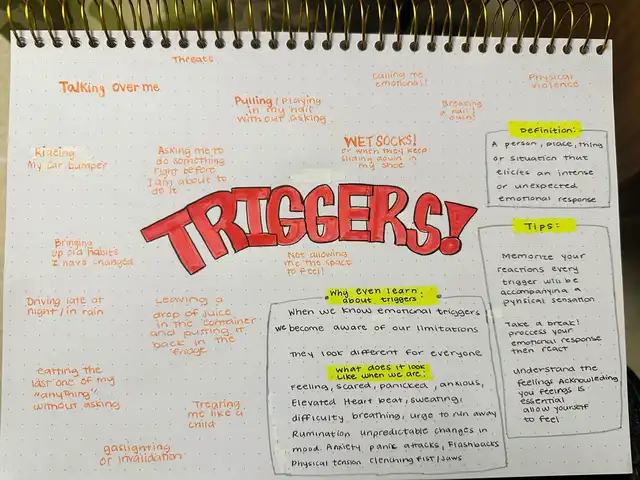 Threats
Talking over me
Calling me
emotional!
Physical
violence
Pulling/Playing
in my hair
without asking
Breaking
a nail!
ouch!
Kicking
My car bumper
Asking me to
do something
right before
I am about to
do it
WET SOCKS!
or when they keep
sliding down in
my shoe
Definition:
A person, place, thing
or situation that
elicits an intense
or unexpected
emotional response
TRIGGERS!
Bringing
up old habits
I have changed
Not allowing
me the space
to feel
Tips:
Memorize your
reactions every
trigger will be
accompanying a
pyhsical sensation
Take a break!
proccess your
emotional response
then react
Understand the
feelings Acknowleding
you feeings is
essential
allow yourself
to feel
Driving late at
night/in rain
Leaving a
drop of juice
in the container
and putting it
back in the
fridge
Why even learn
about triggers:
When we know emotional triggers
we become aware of our limitations
They look different for everyone
What does it look
like when we are:
Feeling, scared, panicked, anxious,
Elevated Heart beat, sweating,
difficulty breathing, urge to run away
Rumination unpredictable changes in
mood. Anxiety panic attacks, Flashbacks
Physical tension clenching fist/Jaws
eatting the
last one of my
"anything"
without asking
Treating
me like a
child
gaslighting
or invalidation